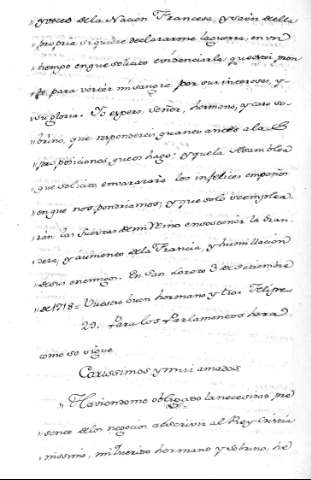 „ yotros de la Nacion Francesa, y aun de ella
„ propria si quiere declararme la guerra, en vn
„ tiempo en que solicito evidenciarla, que estoi pron
„ to para verter mi sangre por sus intereses, y
„ su gloria. Yo espero, Señor, hermano, y caro so
„ brino, que respondereis quanto antes a la
„ proposicion, que os hago; y que la Asamblea
„ que solicito embarazará los infelices empeños
„ en que nos pondriamos; y que solo se emplea
„ rán las fuerzas de mi Reino en sostener la Gran
„ deza, y aumento de la Francia, y humillacion
„ de sus enemigos. En San Lorenzo 3 de Setiembre
„ de 1718 = Vuestro buen hermano y tio = Felipe
29. Para los Parlamentos hera
como se sigue.
Carissimos y mui amados
„ Haviendome obligado la necesidad pre
„ sente de los negocios a escrivir al Rey Christia
„ nissimo, mi querido hermano y sobrino, he